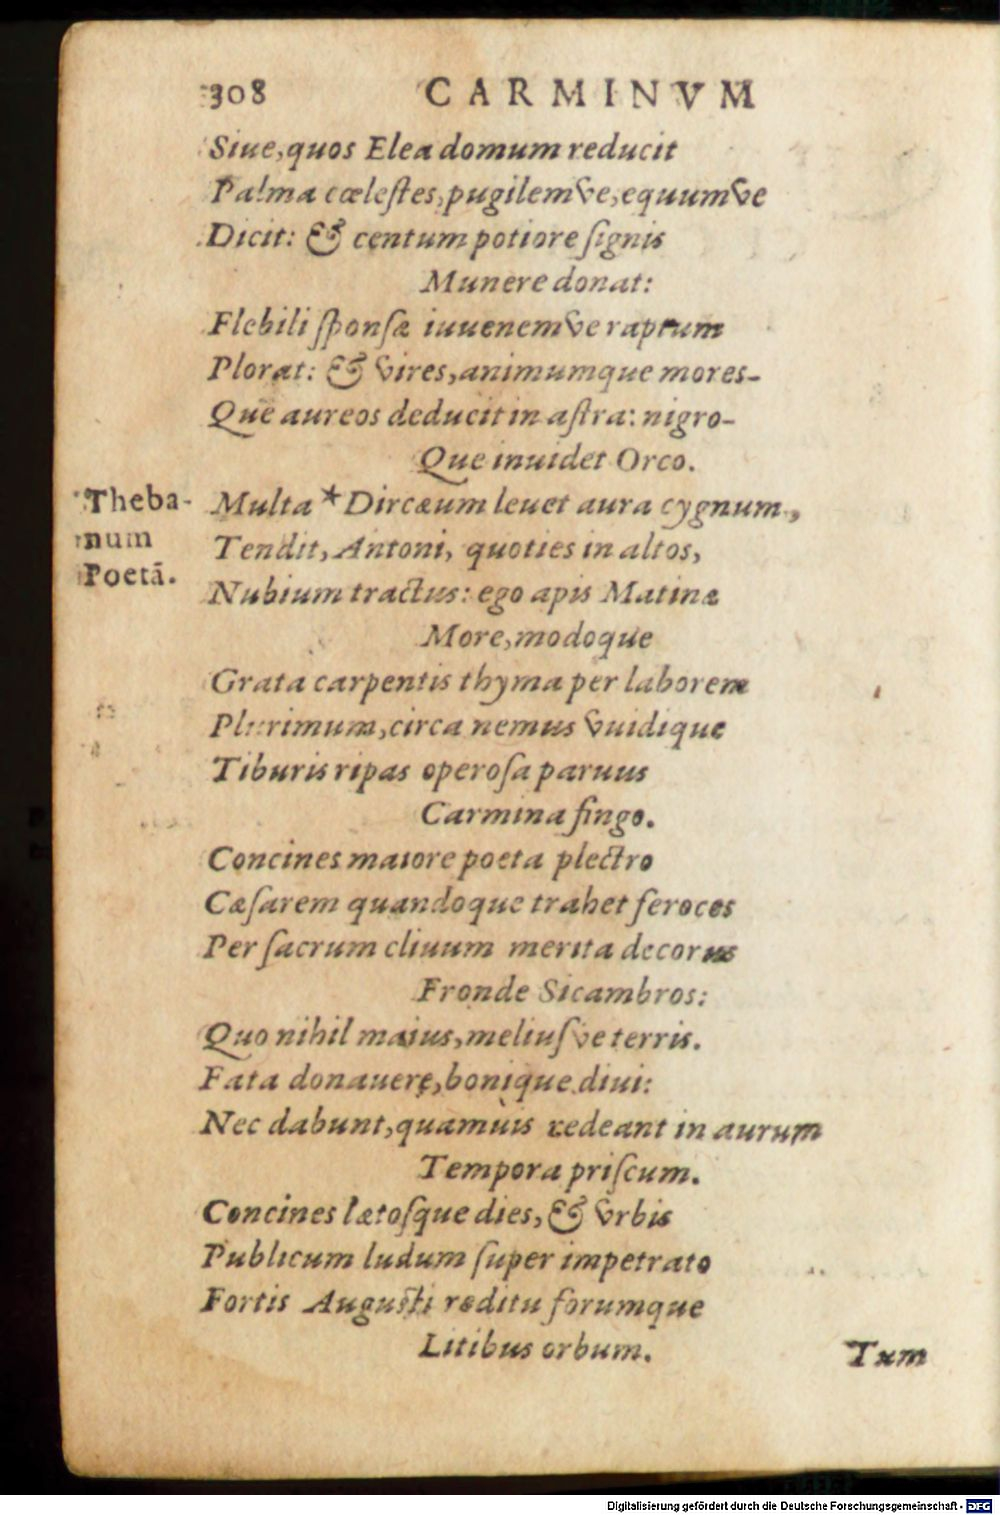 308 CARMINVM
Siue, quos Elea domum reducit
Palma cœlestes, pugilemve, equumve
Dicit: & centum potiore signis
Munere donat:
Flebili sponsæ iuuenemve raptum
Plorat: & vires, animumque mores-
Que aureos deducit in astra: nigro-
Que inuidet Orco.
Theba-
num
Poetā.
Multa * Dircæum leuet aura cygnum,
Tendit, Antoni, quoties in altos,
Nubium tractus: ego apis Matinæ
More, modoque
Grata carpentis thyma per laborem
Plurimum, circa nemus vuidique
Tiburis ripas operosa paruus
Carmina fingo.
Concines maiore poeta plectro
Cæsarem quandoque trahet feroces
Per sacrum cliuum merita decorus
Fronde Sicambros:
Quo nihil maius, meliusve terris.
Fata donauere, bonique diui:
Nec dabunt, quamuis redeant in aurum
Tempora priscum.
Concines lætosque dies, & vrbis
Publicum ludum super impetrato
Fortis Augusti reditu forumque
Litibus orbum.
Tum
Digitalisierung gefördert durch die Deutsche Forschungsgemeinschaft - DFG